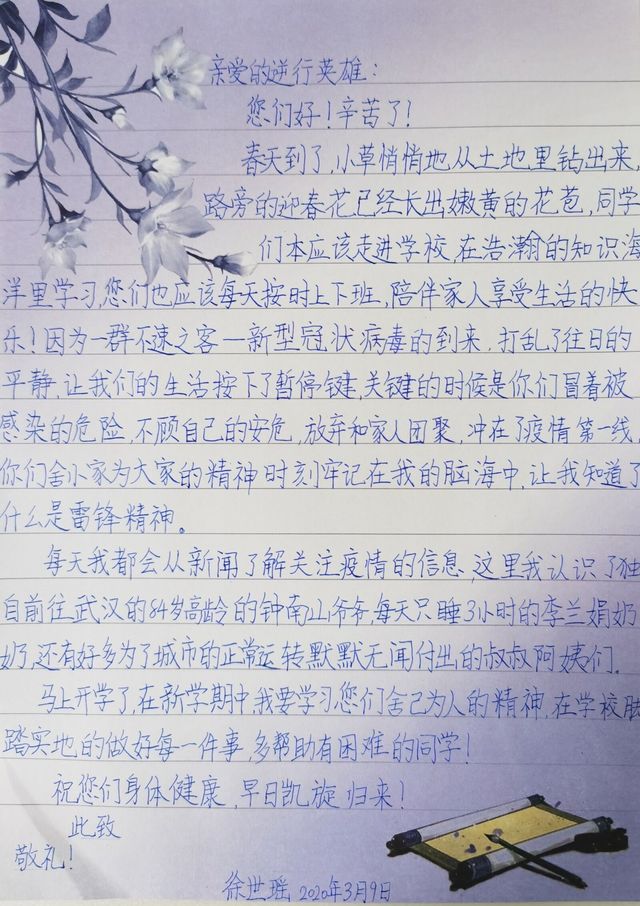 亲爱的逆行英雄：
您们好！辛苦了！
春天到了，小草悄悄地从土地里钻出来，
路旁的迎春花已经长出嫩黄的花苞，同学
们本应该走进学校，在浩瀚的知识海
洋里学习，您们也应该每天按时上下班，陪伴家人享受生活的快
乐！因为一群不速之客—新型冠状病毒的到来，打乱了往日的
平静，让我们的生活按下了暂停键，关键的时候是你们冒着被
感染的危险，不顾自己的安危，放弃和家人团聚，冲在了疫情第一线，
你们舍小家为大家的精神时刻牢记在我的脑海中，让我知道了
什么是雷锋精神。
每天我都会从新闻了解关注疫情的信息，这里我认识了独
自前往武汉的84岁高龄的钟南山爷爷，每天只睡3小时的李兰娟奶
奶，还有好多为了城市的正常运转默默无闻付出的叔叔阿姨们．
马上开学了，在新学期中，我要学习您们舍己为人的精神，在学校脚
踏实地的做好每一件事，多帮助有困难的同学！
祝您们身体健康，早日凯旋归来！
此致
敬礼！
徐世瑶 2020年3月9日